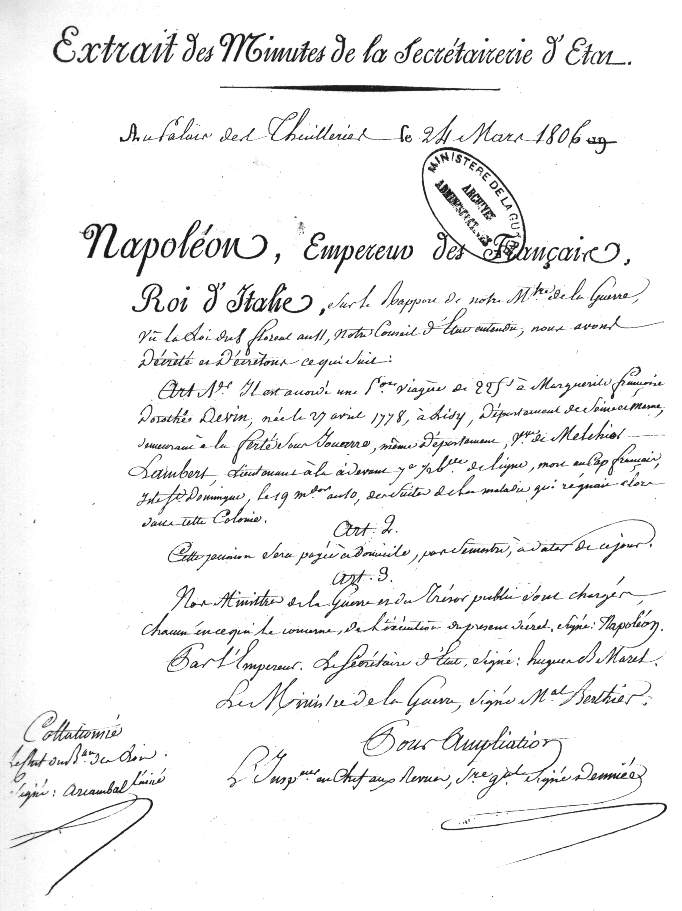 Extrait des Minutes de la Secrétairerie d'Etat.
Au Palais des Thuilleries le 24 Mars 1806
MINISTERE DE LA GUERRE
ARCHIVES
ADMINISTRATIVES
Napoléon, Empereur des Français,
Roi d'Italie, Sur le Rapport de notre Mtre de la Guerre,
Vu la Loi du 8 floreal an 11, Notre Conseil d'Etat entendu, nous avons
Décrété et Décrétons ce qui Suit:
Art 1er Il est accordé une Pon viagère de 225f à Marguerite françoise
Dorothée Devin, née le 27 avril 1778, à Lisy, Département de Seine et Marne,
demeurant à la ferté Sous Jouarre, même Département, Vve de Melchior
Lambert, Lieutenant à la ci devant 7e ½ de ligne, mort au Cap français,
Isle St Domingue, le 19 an 10, des Suites de la maladie qui regnait alors
dans cette Colonie.
Art. 2.
Cette pension Sera payée à Domicile, par Semestre, à dater de ce jour.
Art. 3.
Nos Ministres de la Guerre et du Trésor public Sont chargés,
chacun en ce qui le concerne, de l'éxécution du present decret. Signé: Napoléon.
Par l'Empereur. Le Secrétaire d'Etat, Signé: hugues B. Maret.
Le Ministre de la Guerre, Signé Mal Berthier.
Pour Ampliation
L'Inspeur en Chef aux Revues, Sre gal Signé Denniée
Collationné
Le Chef du Bau
Signé: Arcambal l'ainé